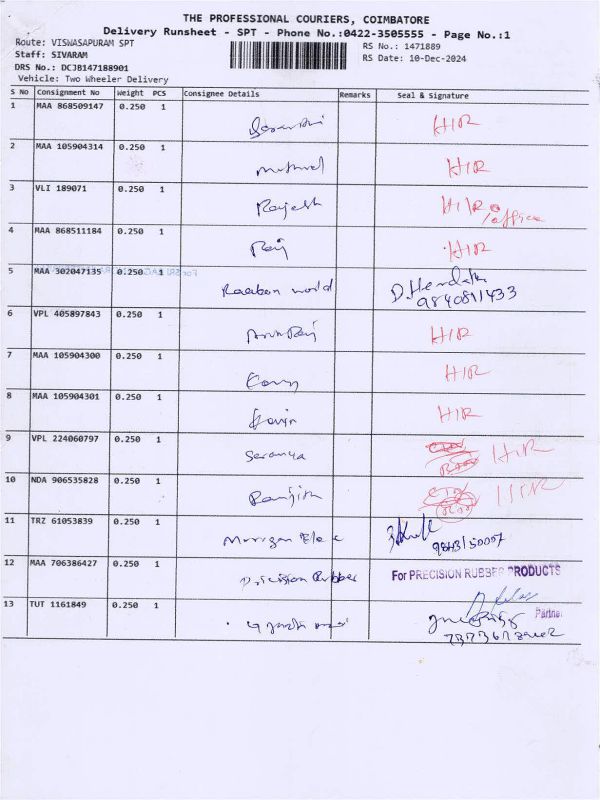 THE PROFESSIONAL COURIERS, COIMBATORE
Delivery Runsheet - SPT - Phone No.:0422-3505555 - Page No.:1
Route: VISWASAPURAM SPT
RS No.: 1471889
Staff: SIVARAM
RS Date: 10-Dec-2024
DRS No.: DCJB147188901
Vehicle: Two Wheeler Delivery
S No Consignment No Weight PCS Consignee Details Remarks Seal & Signature
1 MAA 868509147 0.250 1 HIR
2 MAA 105904314 0.250 1 HIR
3 VLI 189071 0.250 1 Rajesh HIR
office
4 MAA 868511184 0.250 1 Raj HIR
5 MAA 302047135 0.250 1 world
9840811433
6 VPL 405897843 0.250 1 Arun Raj HIR
7 MAA 105904300 0.250 1 HIR
8 MAA 105904301 0.250 1 HIR
9 VPL 224060797 0.250 1 Saranya HIR
10 NDA 906535828 0.250 1 Ranjith HIR
11 TRZ 61053839 0.250 1 Murugan
9843150007
12 MAA 706386427 0.250 1 Rubber For PRECISION RUBBER PRODUCTS
Partner
13 TUT 1161849 0.250 1